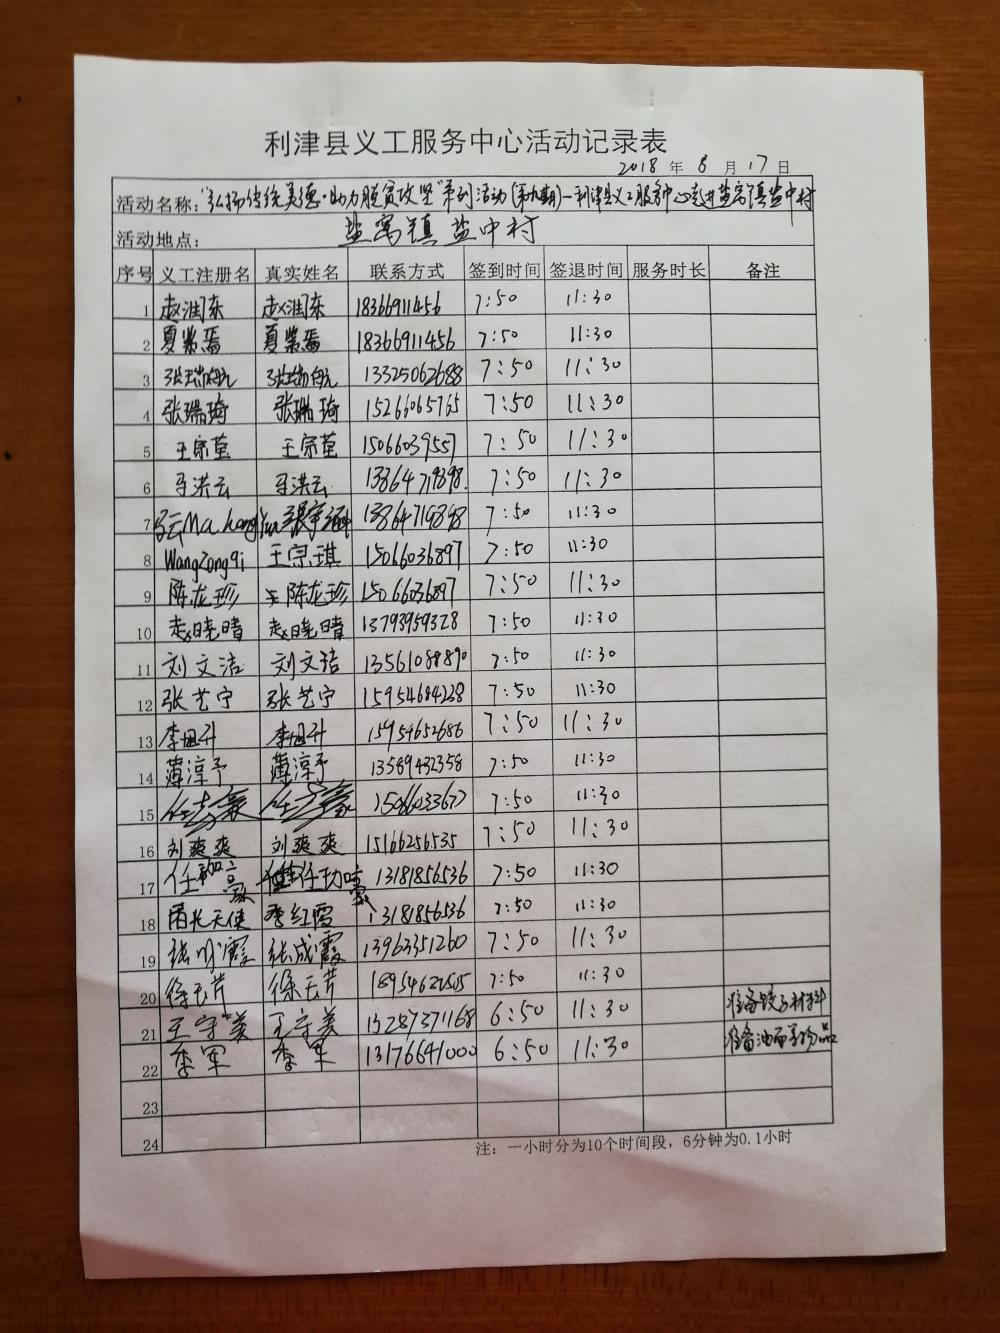 利津县义工服务中心活动记录表
2018 年 8 月 17 日
活动名称: "弘扬传统美德·助力脱贫攻坚"系列活动(第九期)—利津县义工服务中心走进盐窝镇盐中村
活动地点: 盐窝镇盐中村
序号 义工注册名 真实姓名 联系方式 签到时间 签退时间 服务时长 备注
1 赵润东 赵润东 18366911456 7:50 11:30
2 夏紫焉 夏紫焉 18366911456 7:50 11:30
3 13325062688 7:50 11:30
4 张瑞琦 张瑞琦 15266065765 7:50 11:30
5 王宗莹 王宗莹 15066039557 7:50 11:30
6 马洪云 马洪云 13864719898. 7:50 11:30
7 13864719898 7:50 11:30
8 WangZongqi 王宗琪 15066036897 7:50 11:30
9 陈龙珍 陈龙珍 15066036897 7:50 11:30
10 赵晓晴 赵晓晴 13793959328 7:50 11:30
11 刘文洁 刘文洁 13561088890 7:50 11:30
12 张艺宁 张艺宁 15954684238 7:50 11:30
13 李旭升 李旭升 15954652686 7:50 11:30
14 薄淳予 薄淳予 13589432358 7:50 11:30
15 15066033677 7:50 11:30
16 刘爽爽 刘爽爽 15166256535 7:50 11:30
17 13181856536 7:50 11:30
18 阳光天使 季红霞 13181856536 7:50 11:30
19 张成霞 13963351260 7:50 11:30
20 徐玉芹 徐玉芹 7:50 11:30
21 王守美 王守美 15287371168 6:50 11:30 准备饺子材料
22 季军 季军 13176641000 6:50 11:30 准备油面等物品
23
24
注: 一小时分为10个时间段, 6分钟为0.1小时